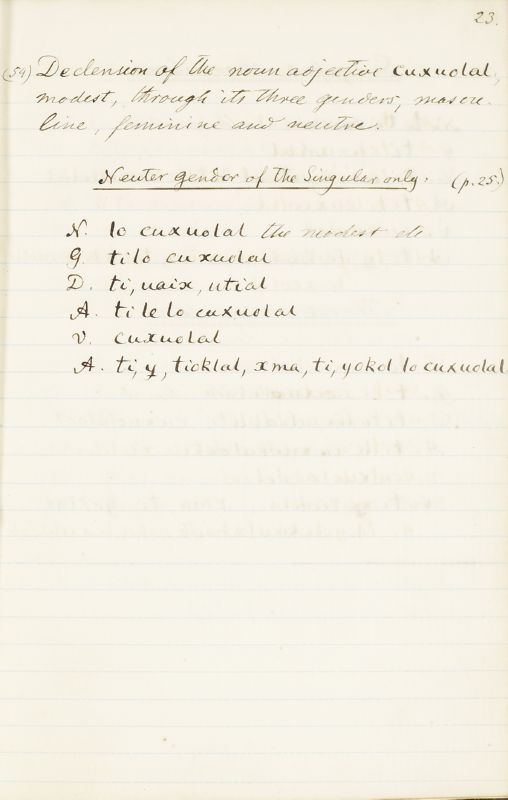 23.
(54) Declension of the noun adjective cuxuolal,
modest, through its three genders, mascu-
line, feminine and neutre.
Neuter gender of the Singular only. (p. 25.)
N. lo cuxuolal the modest etc
G. tilo cuxuolal
D. ti, uaix, utial
A. ti le lo cuxuolal
V. cuxuolal
A. ti, y, tioklal, xma, ti, yokol lo cuxuolal